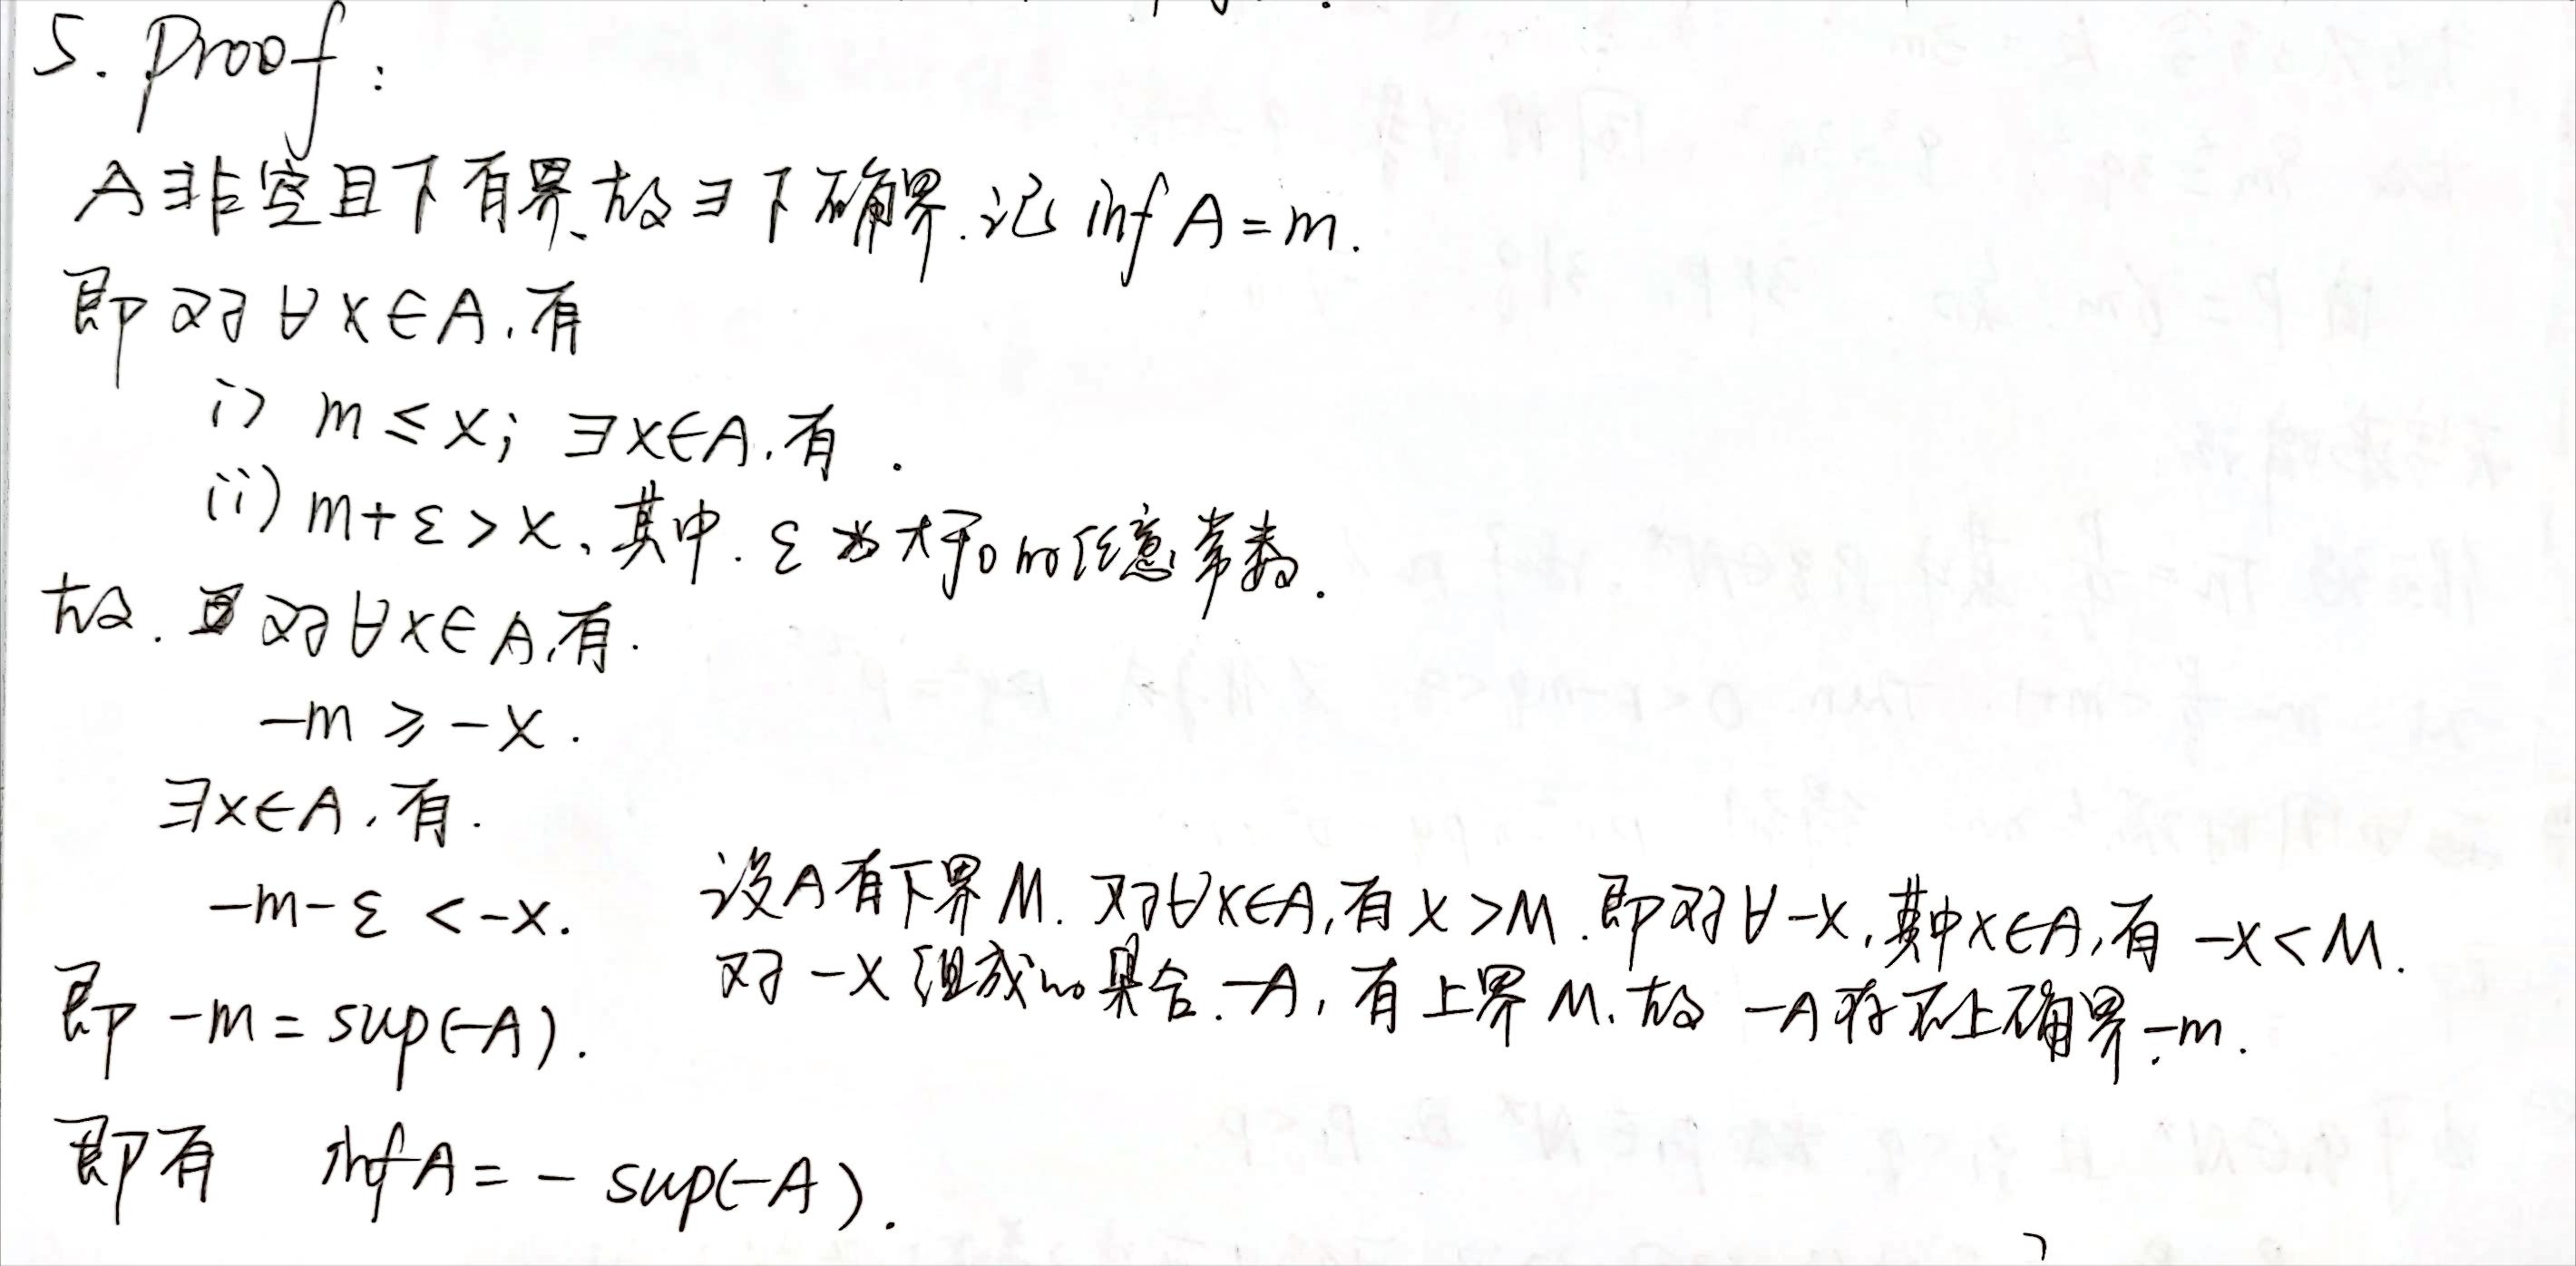 5. Proof:
A非空且下有界、故∃下确界.记 inf A = m.
即对∀x∈A,有
i) m ≤ x; ∃x∈A,有.
(ii) m+ε > x、其中. ε为大于0的任意常数.
故. 对∀x∈A,有.
-m ≥ -x.
∃x∈A,有.
-m-ε < -x.
即 -m = sup(-A).
设A有下界M. 对∀x∈A,有 x>M.即对∀-x,其中x∈A,有 -x<M.
对 -x 组成的集合.-A,有上界 M.故 -A存在上确界-m.
即有 inf A = - sup(-A).